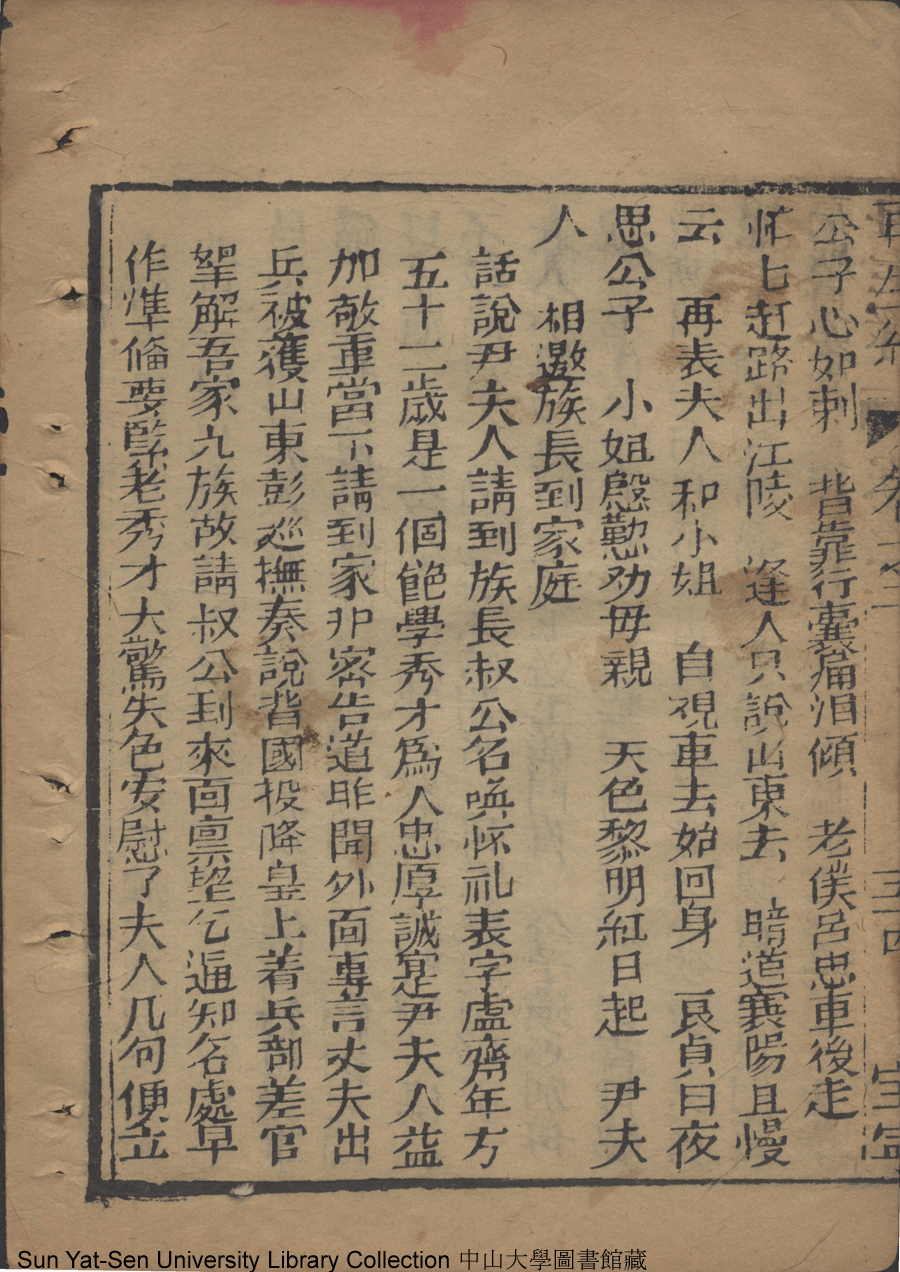 公子心如刺　背靠行囊痛泪傾　老僕呂忠車後走
忙七赶路出江陵　逢人只說山東去　暗道襄陽且慢
云　再表夫人和小姐　自視車去始回身　哀貞日夜
思公子　小姐慇懃劝母親　天色黎明紅日起　尹夫
人　相邀族長到家庭
話說尹夫人請到族長叔公名喚怀礼表字盧齋年方
五十二歲是一個飽學秀才爲人忠厚誠寔尹夫人益
加敬重當下請到家中密告道昨聞外面專言丈夫出
兵被獲山東彭巡撫奏說背國投降皇上着兵部差官
拏解吾家九族故請叔公到來面禀望乞通知名處早
作準俻要緊老秀才大驚失色安慰了夫人几句便立
Sun Yat-Sen University Library Collection 中山大學圖書館藏